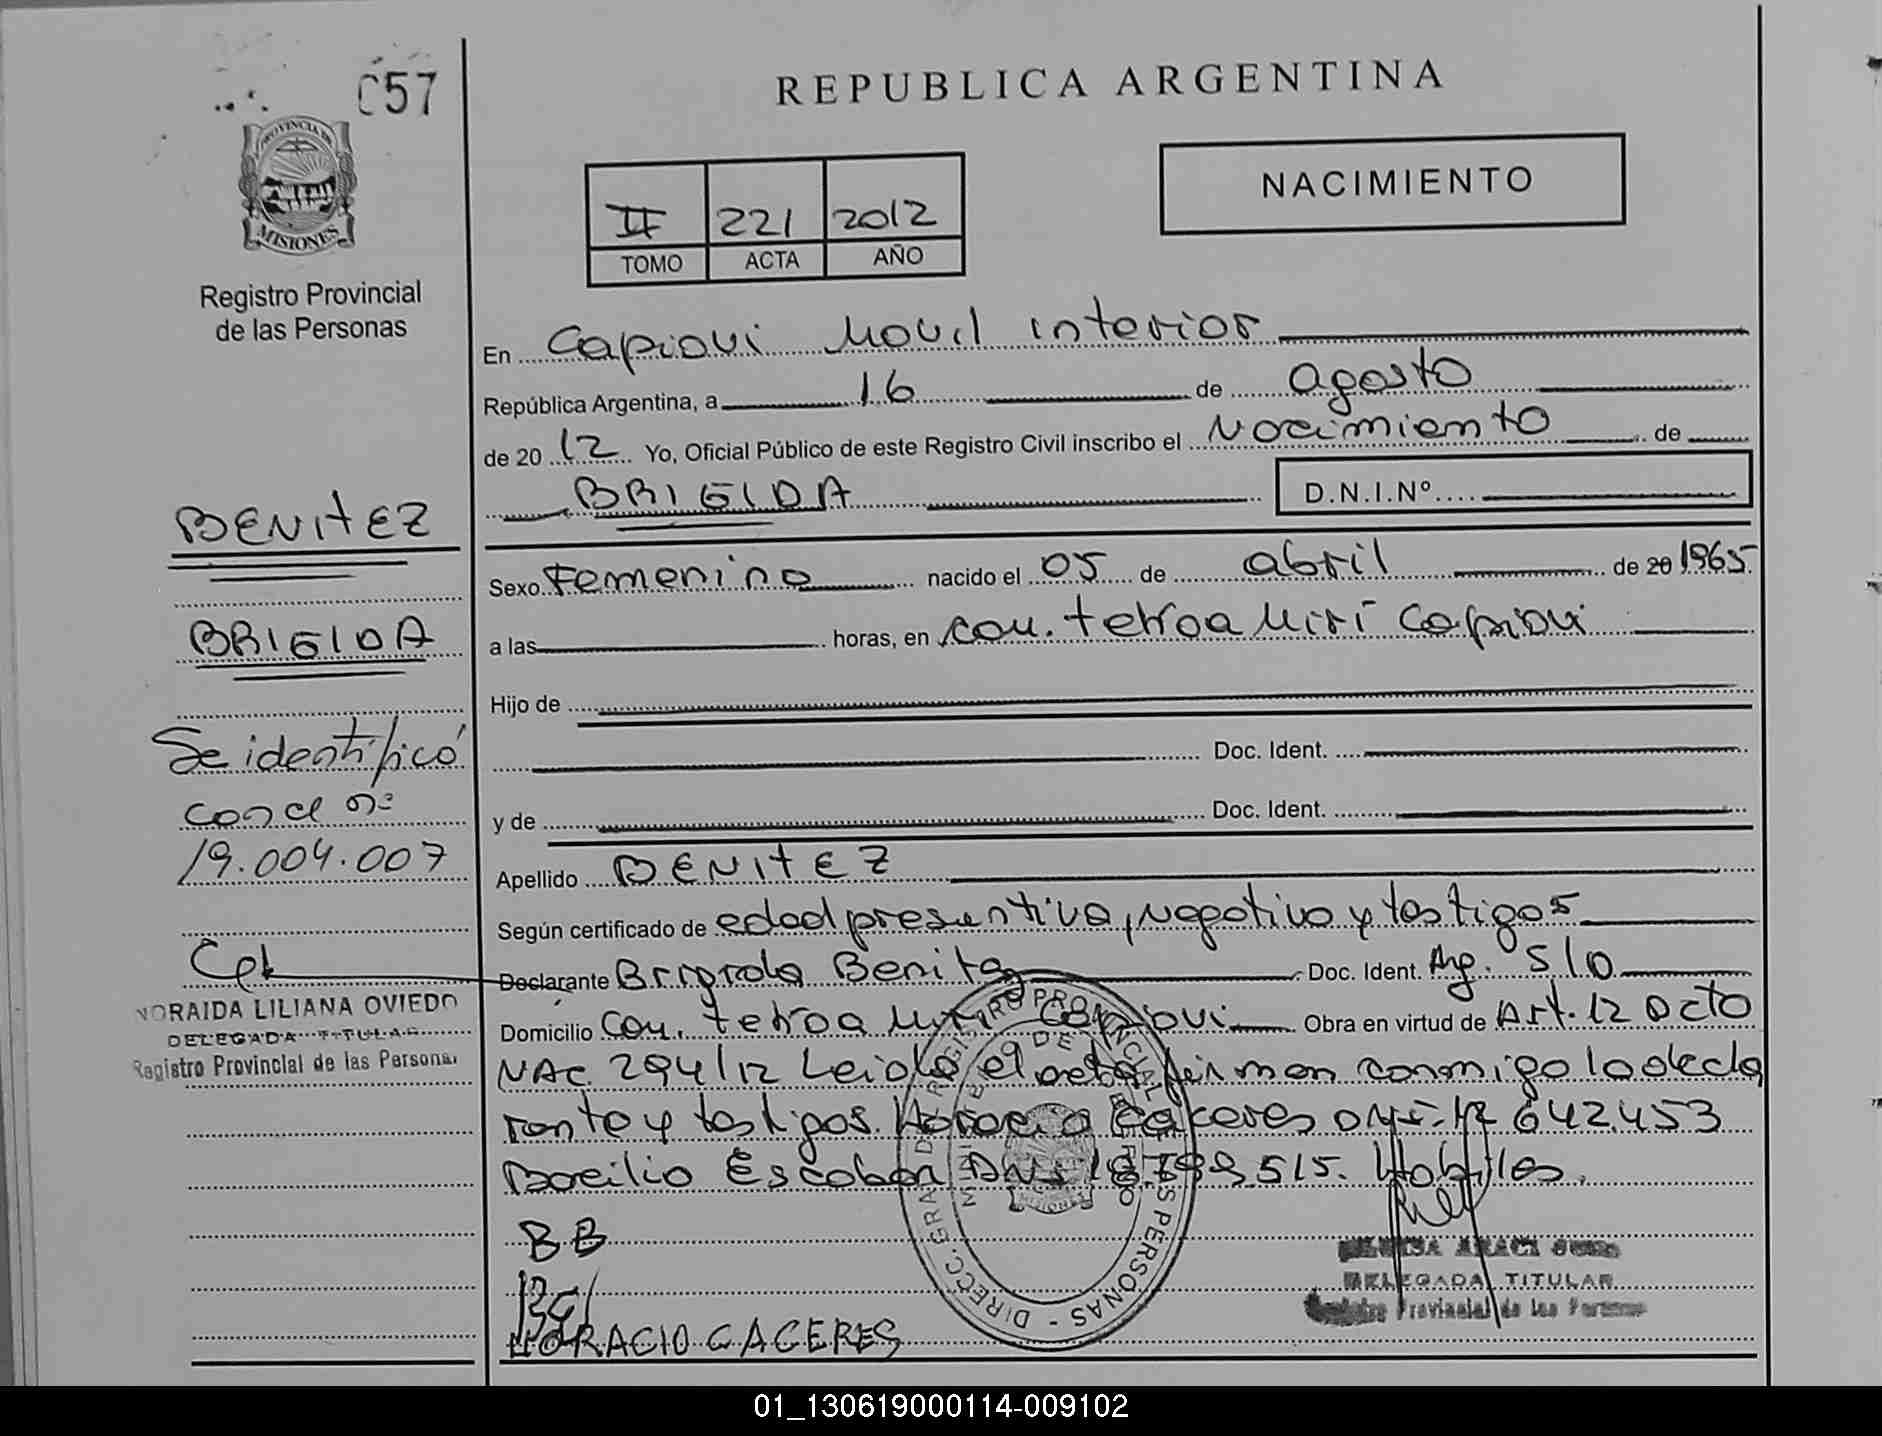 C57
PROVINCIA DE
MISIONES
Registro Provincial
de las Personas
BENITEZ
BRIGIDA
Se identificó
con el nº
19.004.007
NORAIDA LILIANA OVIEDO
DELEGADA TITULAR
Registro Provincial de las Personas
REPUBLICA ARGENTINA
II 221 2012
TOMO ACTA AÑO
NACIMIENTO
En Capiovi Movil interior
República Argentina, a 16 de agosto
de 20 12 Yo, Oficial Público de este Registro Civil inscribo el Nacimiento de
BRIGIDA D.N.I.Nº
Sexo Femenino nacido el 05 de abril de 20 1965
a las horas, en com. tekoa Miri Capiovi
Hijo de
Doc. Ident.
y de Doc. Ident.
Apellido BENITEZ
Según certificado de edad presuntiva, negativo y testigos
Declarante Brigida Benitez Doc. Ident. Arg. S/D
Domicilio Com. tekoa Miri Capiovi Obra en virtud de Art. 12 Dcto
NAC. 294/12 Leida el acta firman conmigo la decla
rante y testigos. Horacio Caceres DNI: 12 642.453
Bacilio Escobar DNI 18.799.515. Habiles.
BB
HORACIO CACERES
DIRECC. GRAL. DE REGISTRO PROVINCIAL DE LAS PERSONAS
MISIONES
DELEGADA TITULAR
Registro Provincial de las Personas
01_130619000114-009102